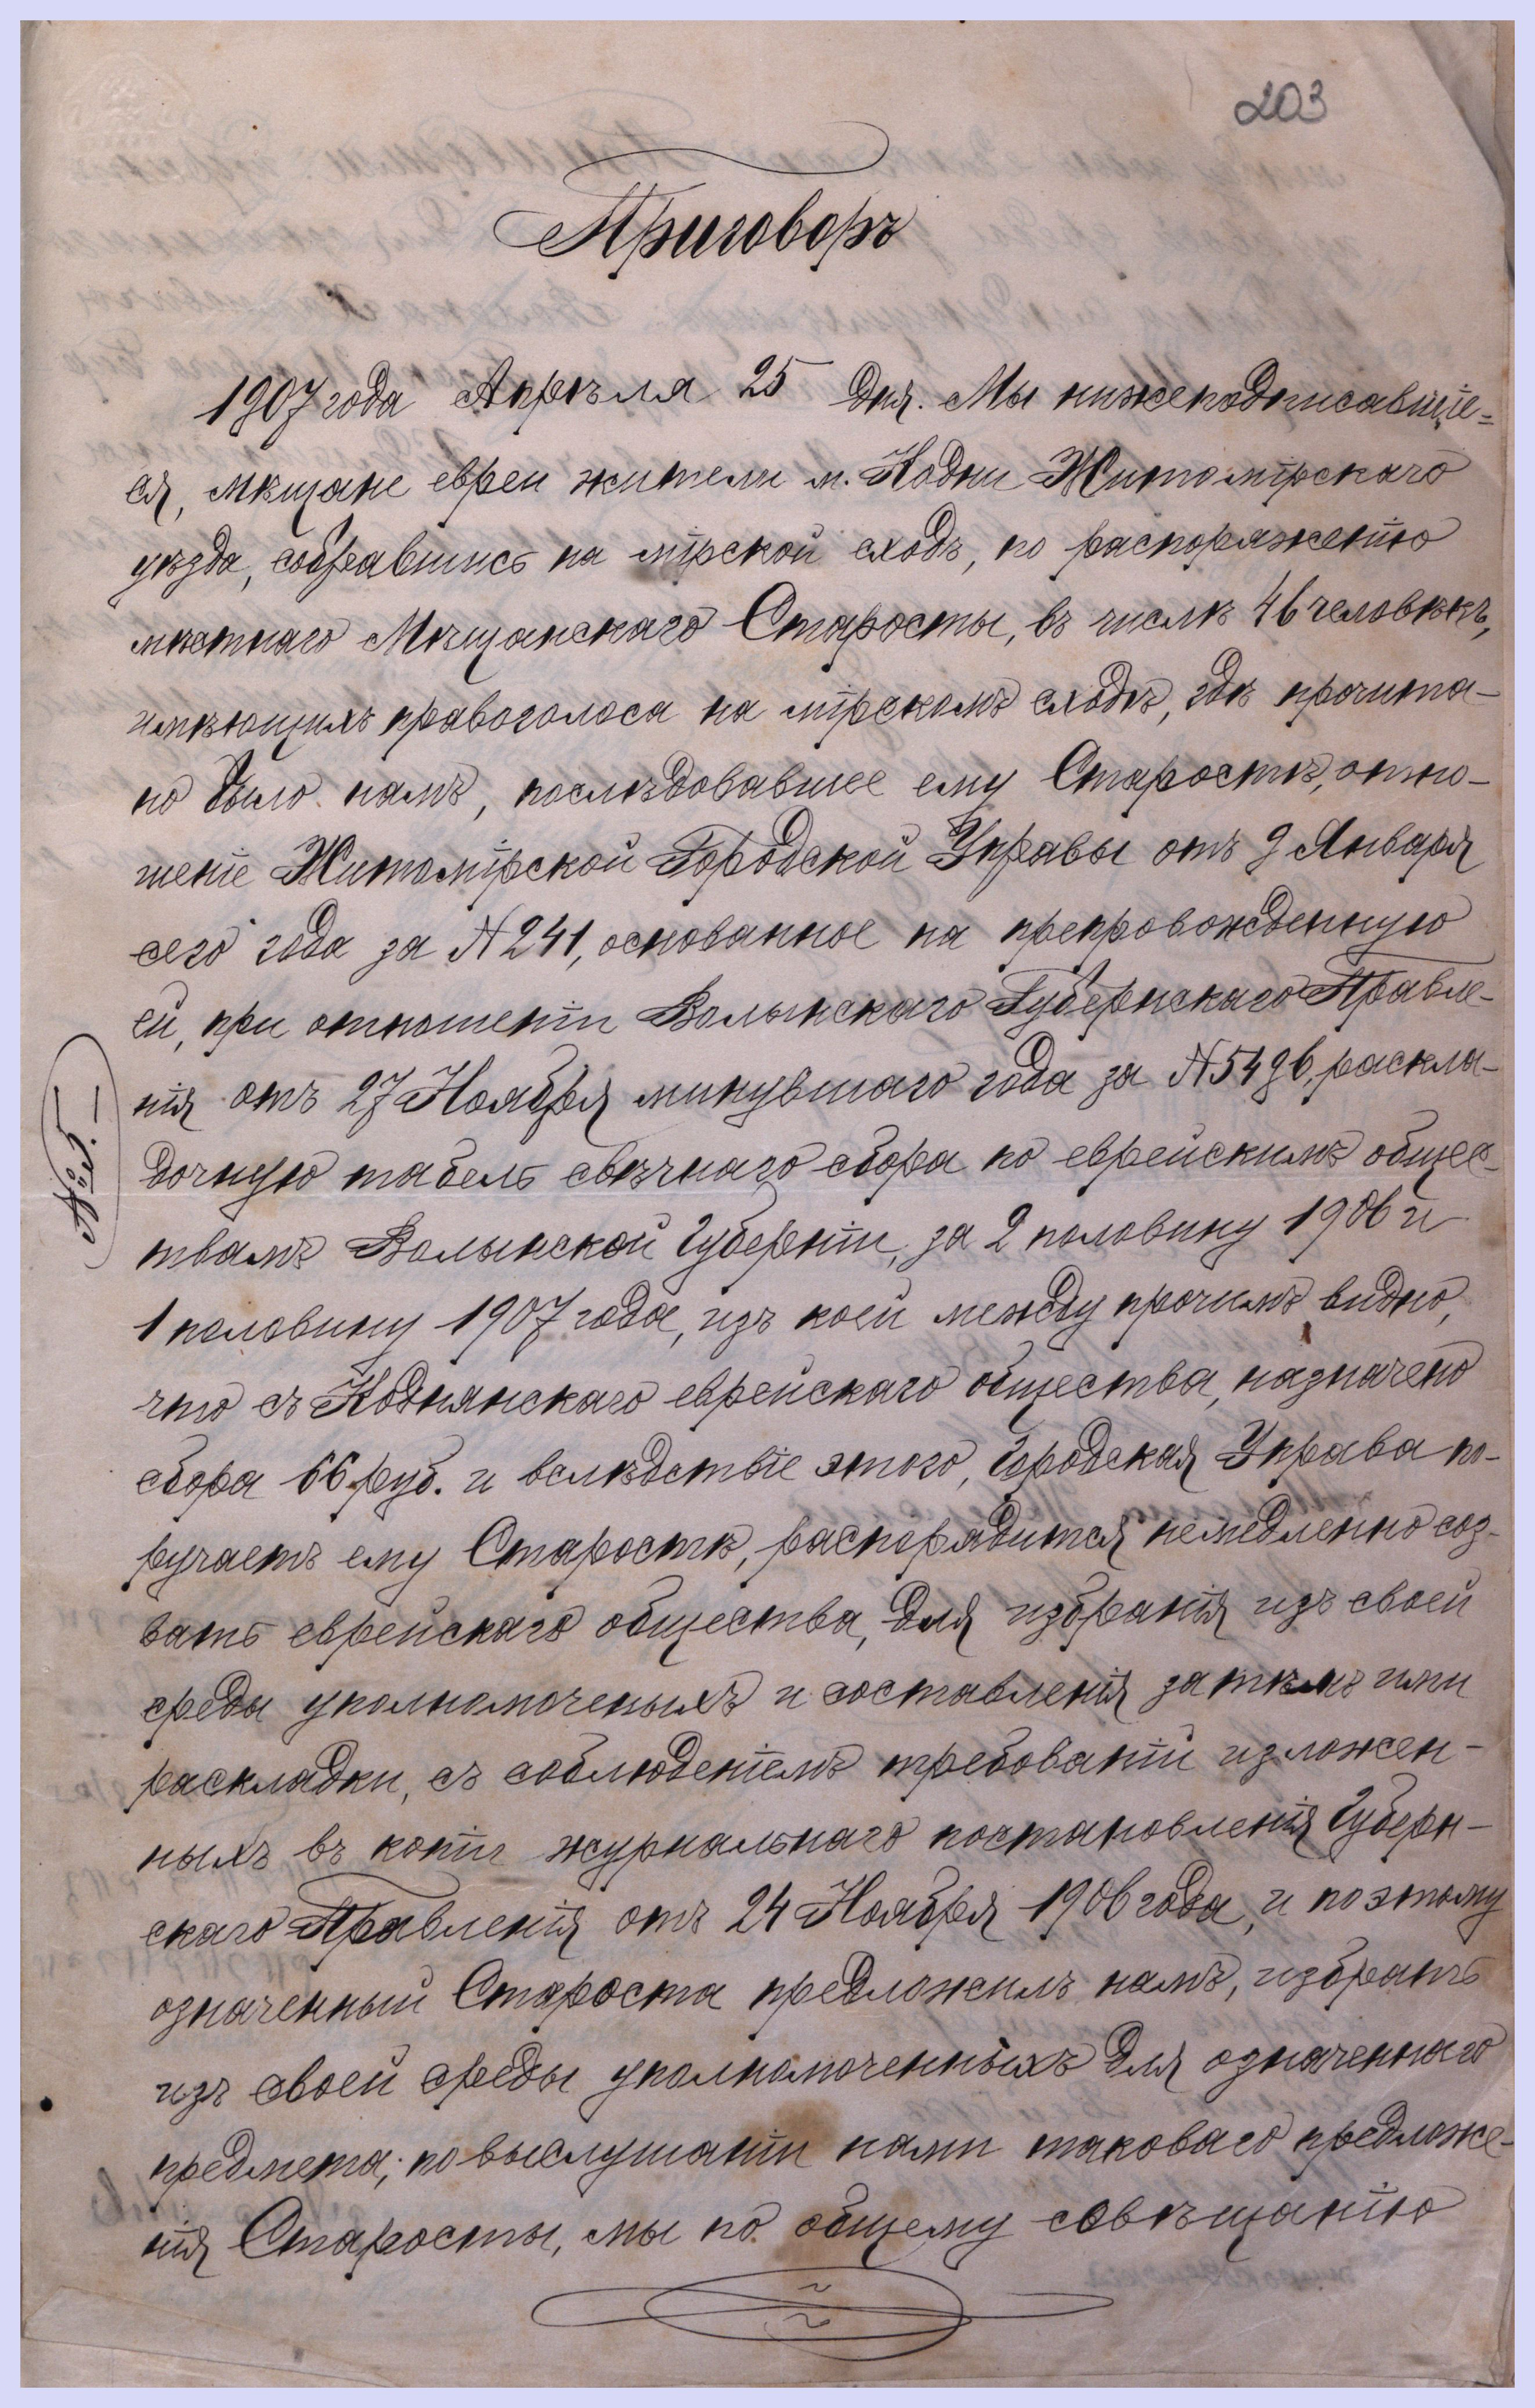 203
Приговоръ
1907 года Апрѣля 25 дня. Мы нижеподписавшіе=
ся, мѣщане евреи жители м. Кодни Житомірскаго
уѣзда, собравшись на мірской сходъ, по распоряженію
мѣстнаго Мѣщанскаго Старосты, въ числѣ 46 человѣкъ,
имѣющихъ правоголоса на мірскомъ сходѣ, гдѣ прочита-
но было намъ, послѣдовавшее ему Старостѣ, отно-
шеніе Житомірской Городской Управы отъ 9 Января
сего года за № 241, основанное на препровожденную
ей, при отношеніи Волынскаго Губернскаго Правле-
нія отъ 27 Ноября минувшаго года за № 5496, раскла-
дочную табель свѣчнаго сбора по еврейскимъ общес-
твамъ Волынской Губерніи, за 2 половину 1906 и
1 половину 1907 года, изъ коей между прочимъ видно,
что съ Коднянскаго еврейскаго общества, назначено
сбора 66 руб. и вслѣдствіе этого, Городская Управа по-
ручаетъ ему Старостѣ, распорядится немедленно соз-
вать еврейскаго общества, для избранія изъ своей
среды уполномоченыхъ и составленія затѣмъ ими
раскладки, съ соблюденіемъ требованій изложен-
ныхъ въ копіи журнальнаго постановленія Губерн-
скаго Правленія отъ 24 Ноября 1906 года, и поэтому
означенный Староста предложилъ намъ, избрать
изъ своей среды уполномоченныхъ для означеннаго
предмета; по выслушаніи нами таковаго предложе-
нія Старосты, мы по общему совѣщанію
№ 5.-